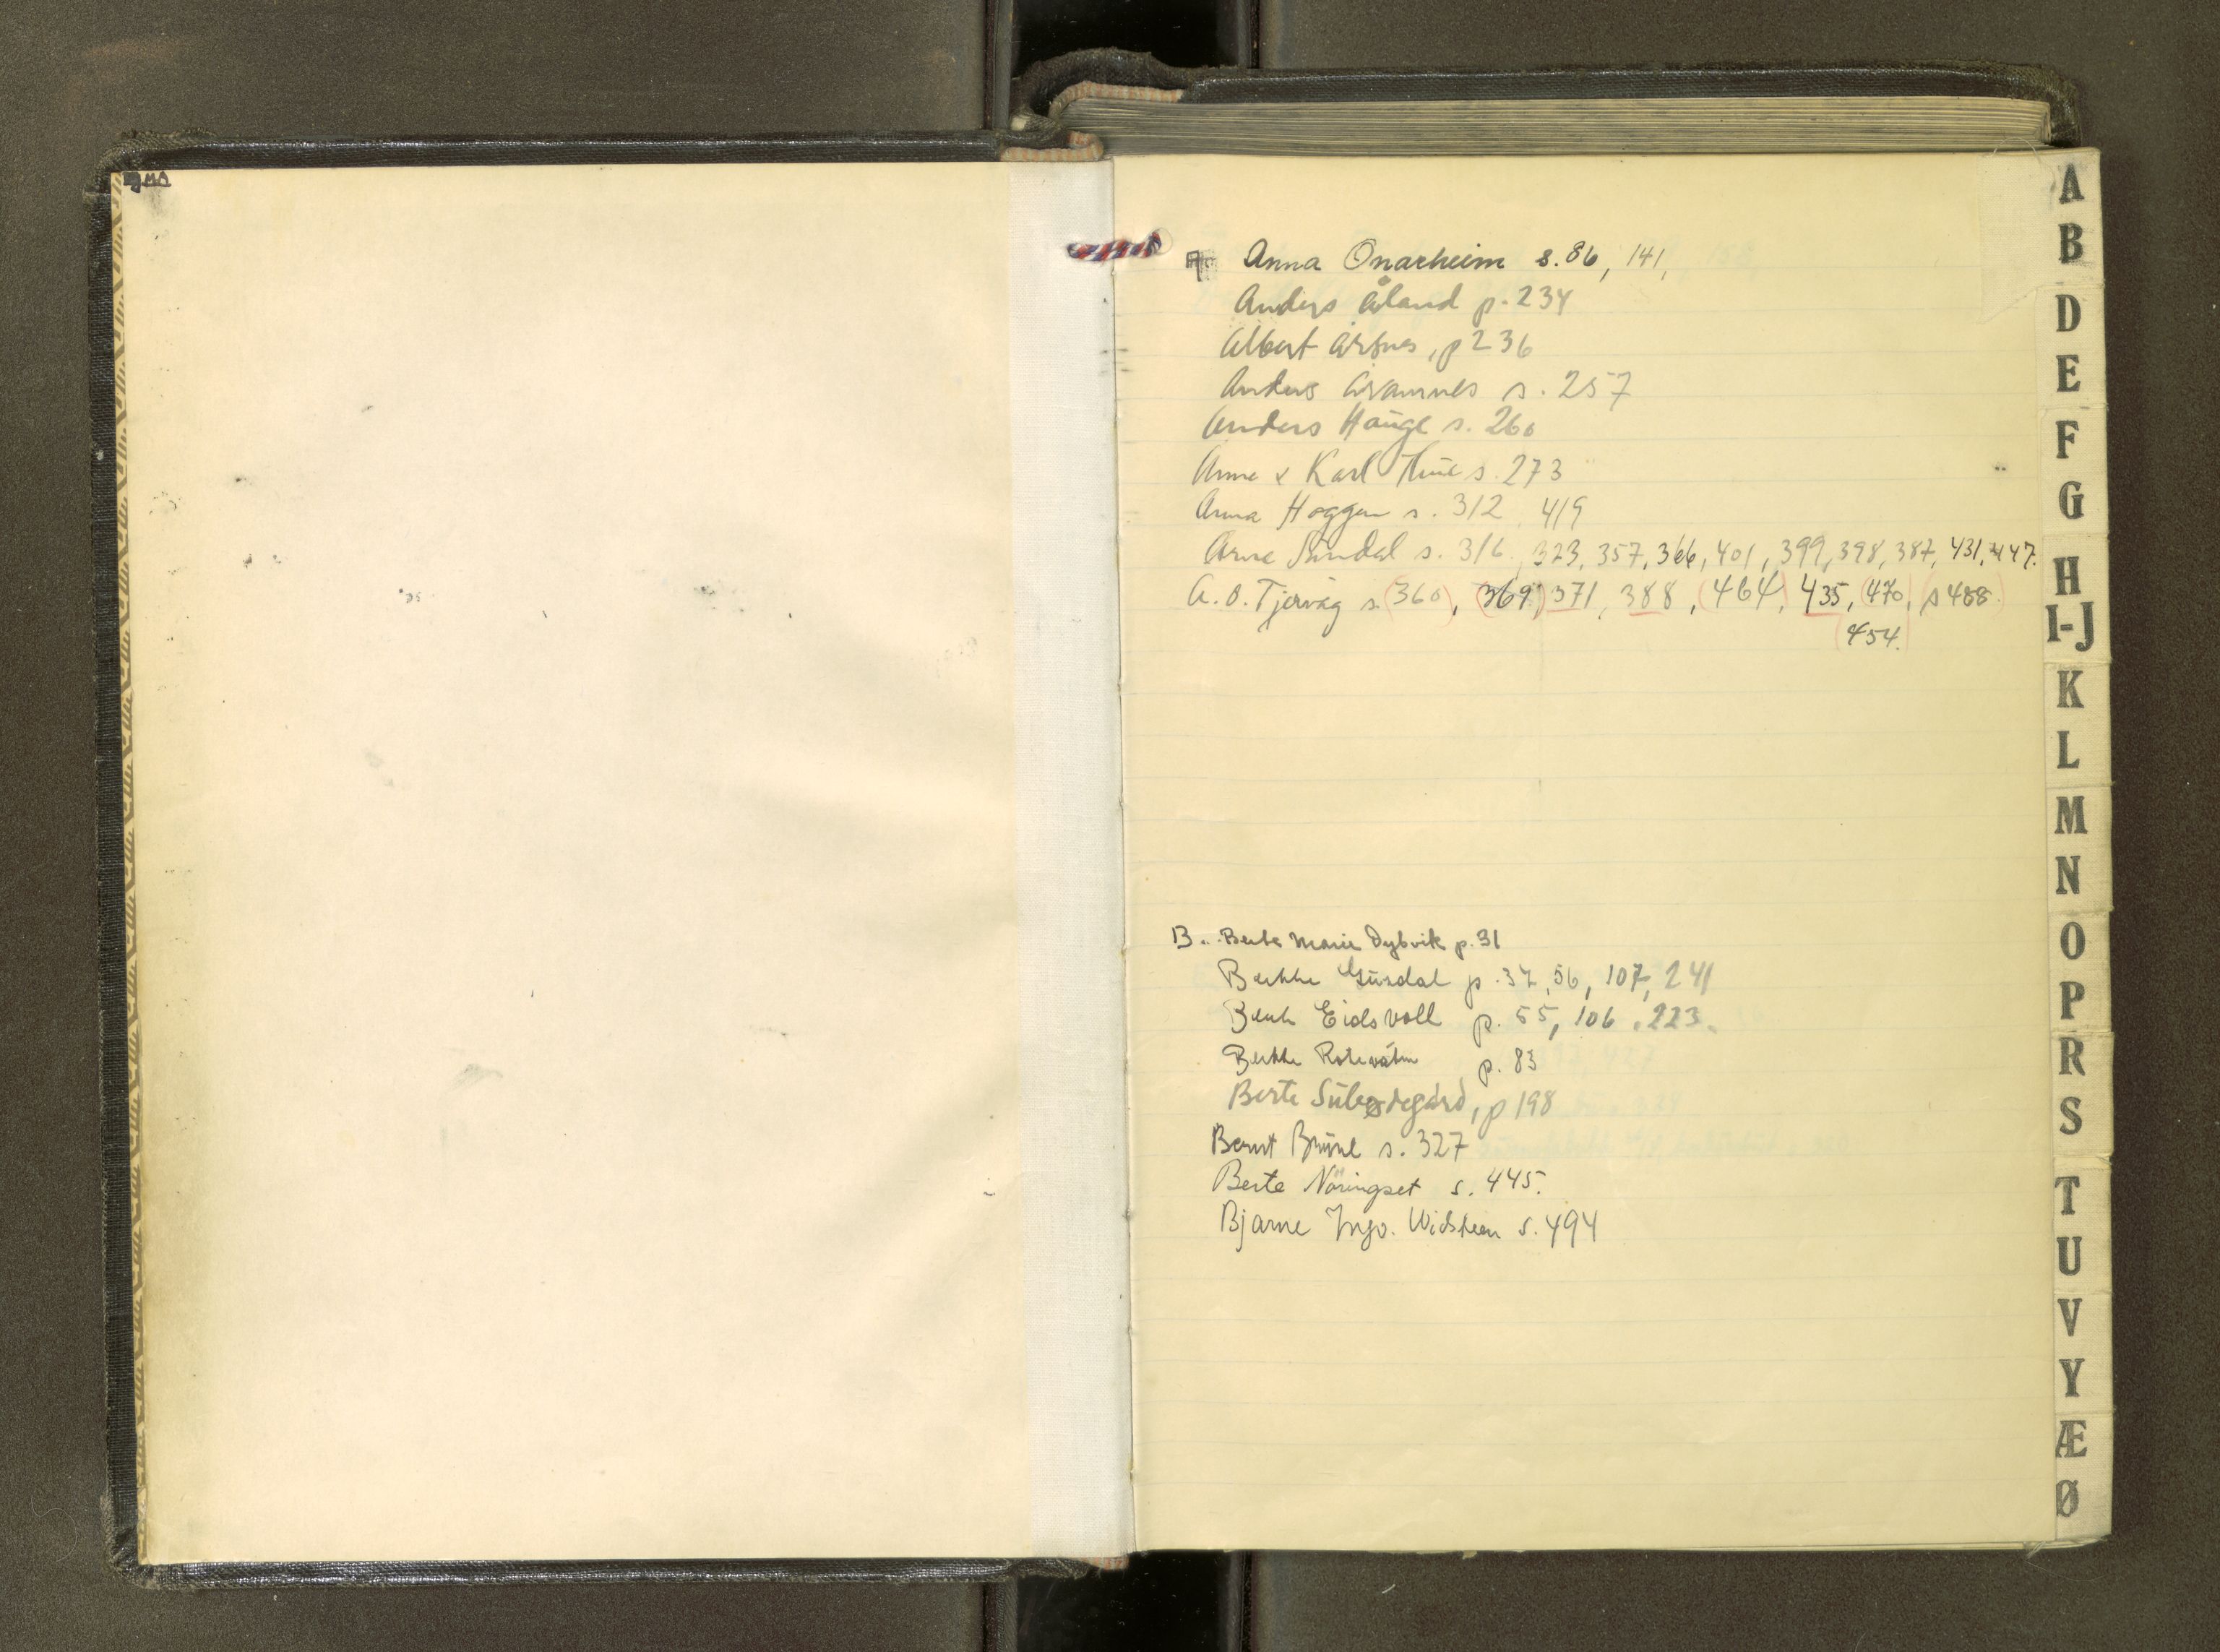 A Anna Onarheim s. 86, 141,
Anders Åland p. 234
Albert p 236
Anders s. 257
Anders Hauge s. 260
Anna & Karl s. 273
Anna Hoggen s. 312 419
Arne Sundal s. 316, 323, 357, 366, 401, 399, 398, 387, 431, 447.
A. O. Tjervåg s. (360), (369) 371, 388, (464), 435, (470, p 488)
(454.)
B. Berte Marie Dybvik p. 31
Berthe p. 37, 56, 107, 241
Eidsvoll p. 55, 106, 223.
Berthe p. 83
Berte p 198
Bernt s. 327
Berte Nöringset s. 445.
Bjarne Ingv. Widsteen s. 494
A
B
D
E
F
G
H
I-J
K
L
M
N
O
P
R
S
T
U
V
Y
Æ
Ø